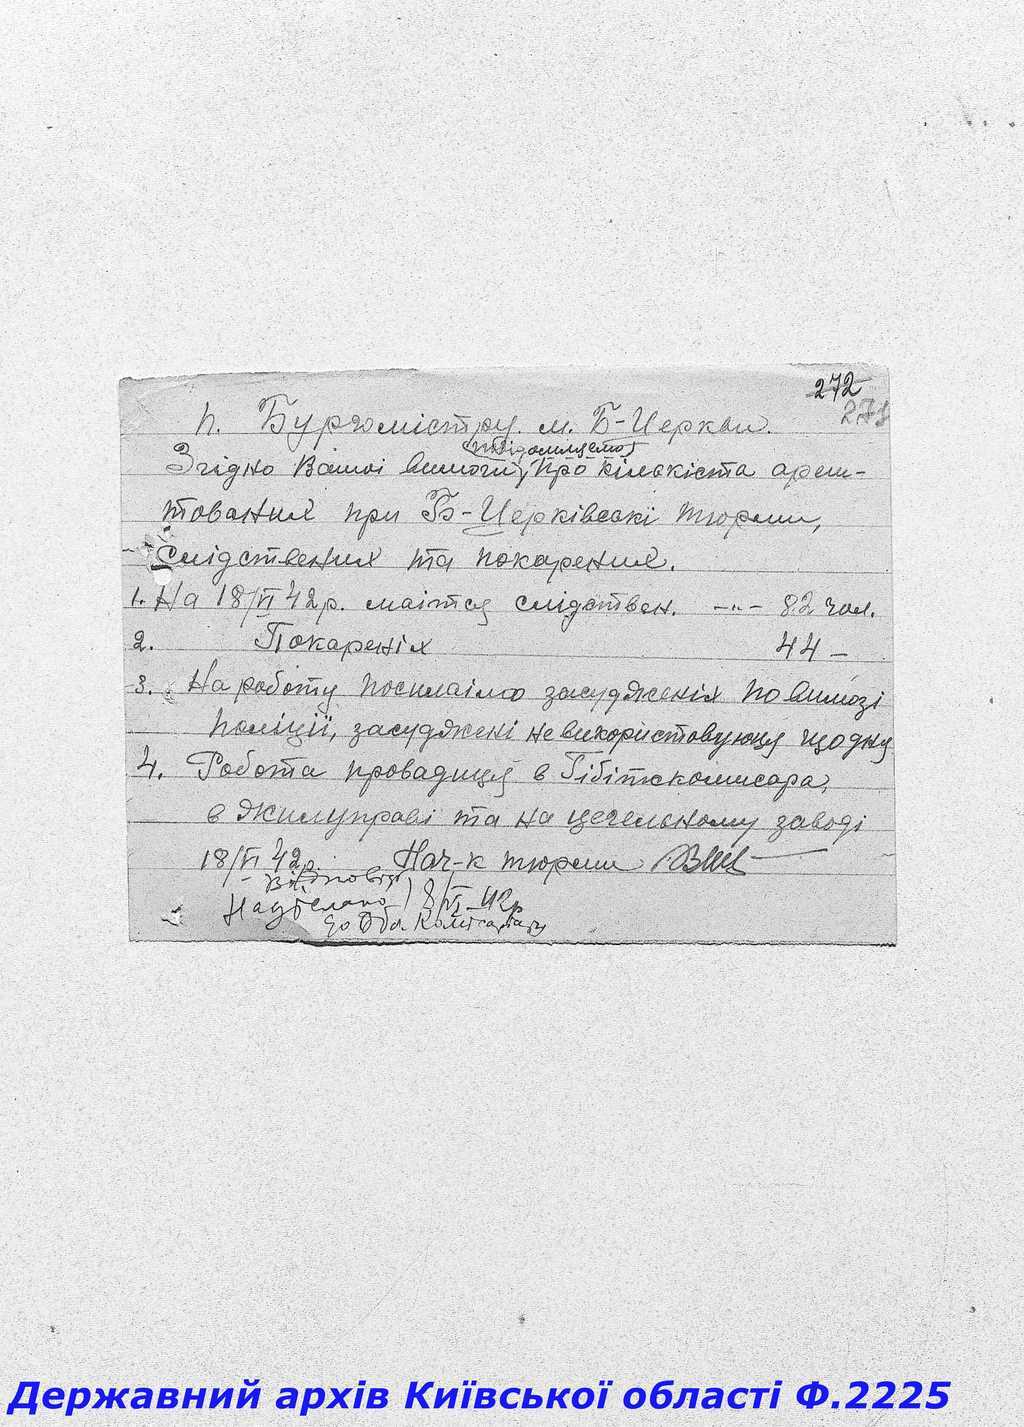 272
271
п. Бургомістру. м. Б-Церкви.
повідомляємо
Згідно Вашої вимоги, про кількіста ареш-
тованих при Б-Церківські тюрми,
слідствених та покарених.
1. На 18/VI 42р. маітся слідствен. -„- 82 чол.
2. Покареніх 44 –
3. На роботу посилаімо засудженіх по вимозі
поліції, засуджені невикористовуюця щодня
4. Робота провадиця в Гібіткомисара,
в Жилуправі та на цегельному заводі
18/VI 42р. Нач-к тюрми
Відповідь
Надіслано 18/VI-42р
до Обл. Комісаріату
Державний архів Київської області Ф.2225